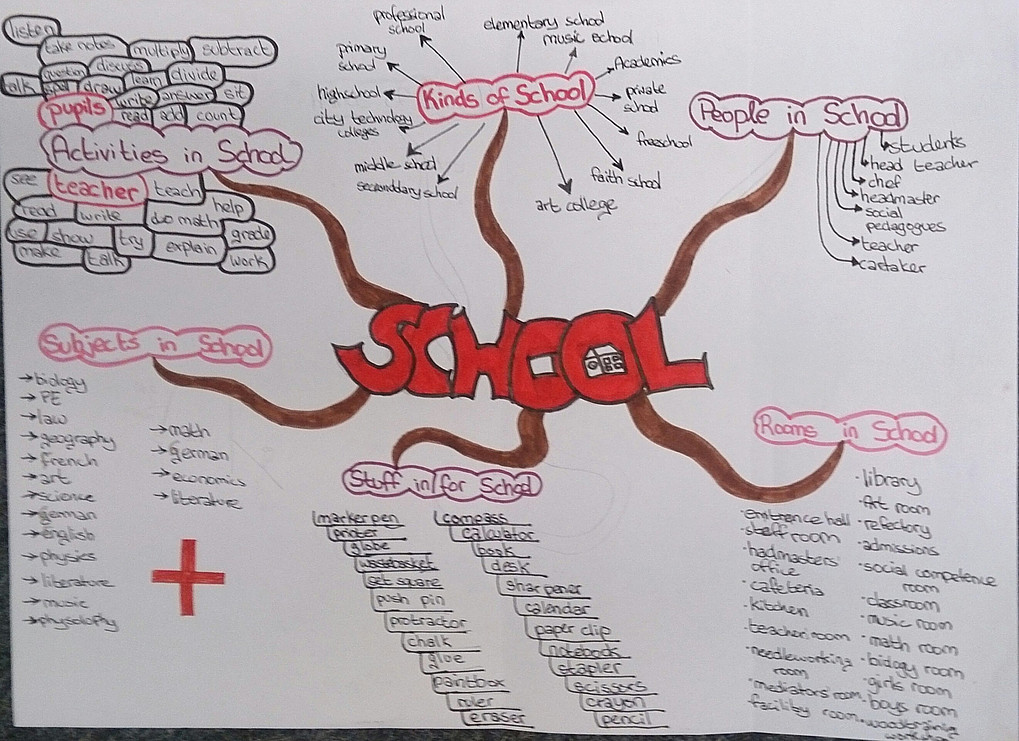 listen
take notes
multiply
subtract
question
discuss
learn
divide
talk
spell
draw
write
answer
sit
pupils
read
add
count
Activities in School
see
teacher
teach
help
read
write
duo math
use
show
try
explain
grade
make
talk
work
Kinds of School
professional
school
elementary school
music school
primary
school
Academics
highschool
private
school
city technology
colleges
freeschool
middle school
faith school
seconddary school
art college
People in School
students
head teacher
chef
headmaster
social
pedagogues
teacher
cartaker
SCHOOL
Subjects in School
biology
PE
law
geography
french
art
science
german
english
physics
literature
music
physolophy
math
german
economics
literature
Stuff in/for School
marker pen
printer
globe
wastebasket
set square
push pin
protractor
chalk
glue
paintbox
ruler
eraser
compass
calculator
book
desk
sharpener
calendar
paper clip
notebook
stapler
scissors
crayon
pencil
Rooms in School
·entrence hall
·staff room
·hadmasters'
office
·cafeteria
·kitchen
·teacher room
·needleworking
room
·mediators' room
·facility room
·library
·Art room
·refectory
·admissions
·social competence
room
·classroom
·music room
·math room
·biology room
·girls room
·boys room